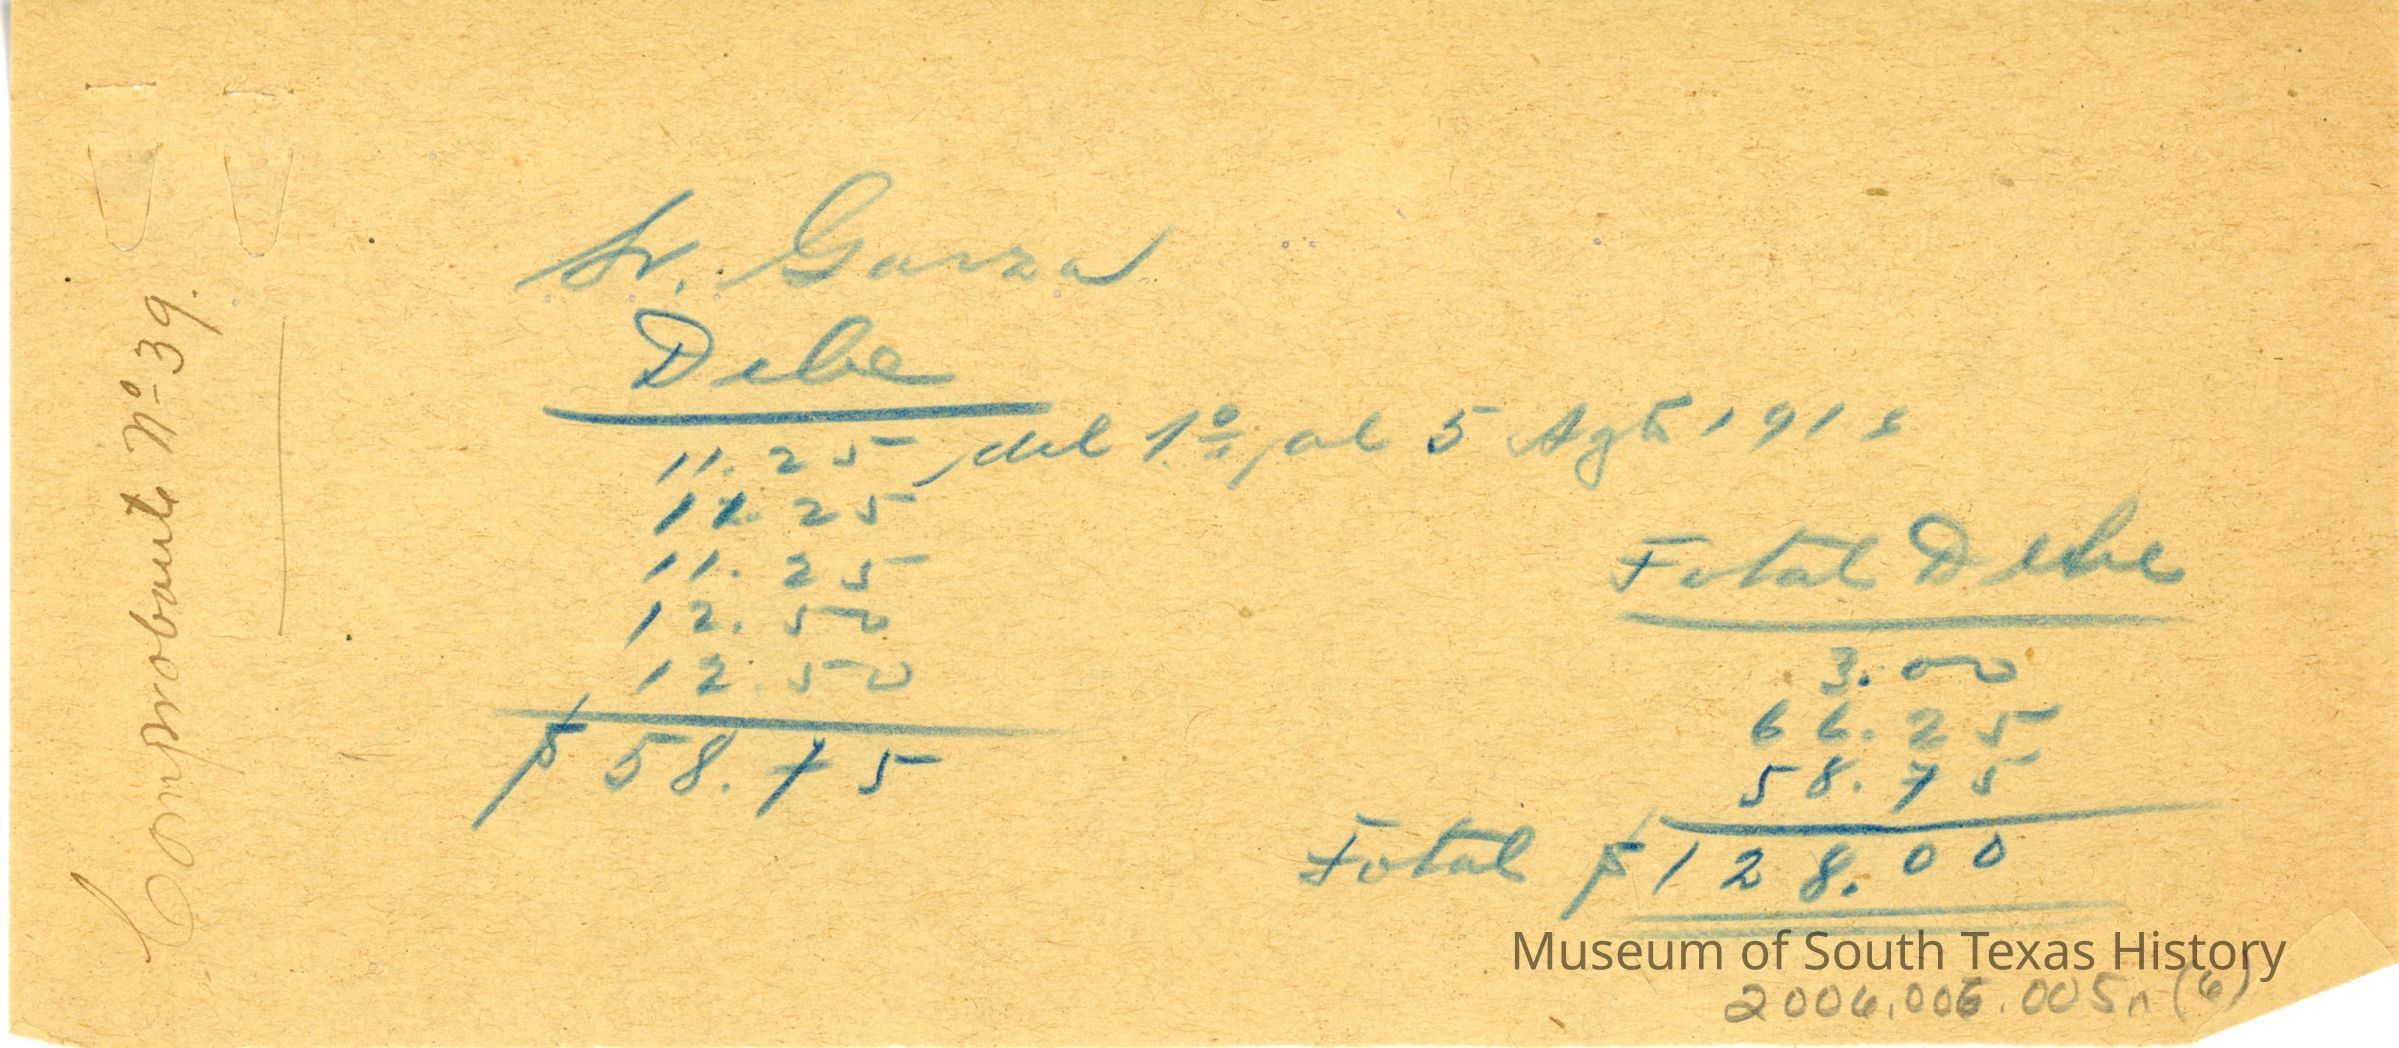 Comprobante Nº 39.
Sr. Garza
Debe
11.25 del 1º al 5 Agto 1918
11.25
11.25
12.50
12.50
$ 58.75
Total Debe
3.00
66.25
58.75
Total $ 128.00
Museum of South Texas History
2006.006.005n (6)